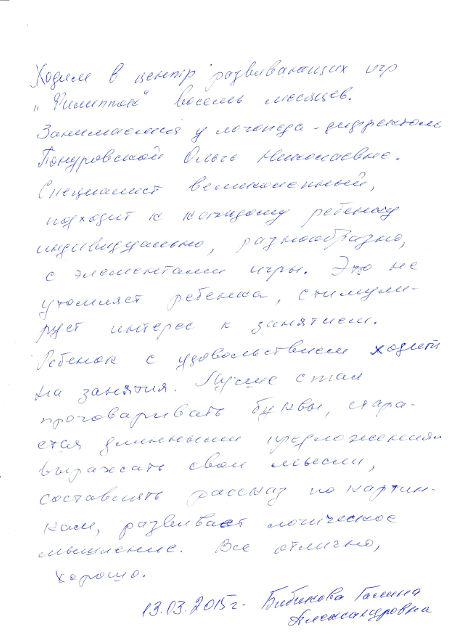 Ходим в центр развивающих игр
„Филиппок" восемь месяцев.
Занимаемся у логопеда-дефектолога
Понуровской Ольги Николаевне.
Специалист великолепный,
подходит к каждому ребенку
индивидуально, разнообразно,
с элементами игры. Это не
утомляет ребенка, стимули-
рует интерес к занятием.
Ребенок с удовольствием ходит
на занятия. Лучше стал
проговаривать буквы, стара-
ется длинными предложениями
выражать свои мысли,
составлять рассказ по картин-
кам, развивает логическое
мышление. Все отлично,
хорошо.
13.03.2015г. Бибикова Галина
Александровна